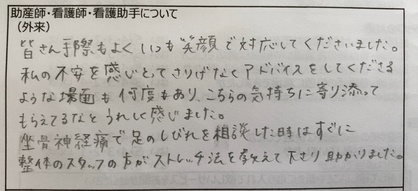 助産師・看護師・看護助手について
(外来)
皆さん手際もよくいつも笑顔で対応してくださいました。
私の不安を感じとってさりげなくアドバイスをしてくださる
ような場面も何度もあり、こちらの気持ちに寄り添って
もらえてるなとうれしく感じました。
坐骨神経痛で足のしびれを相談した時はすぐに
整体のスタッフの方がストレッチ法を教えて下さり助かりました。